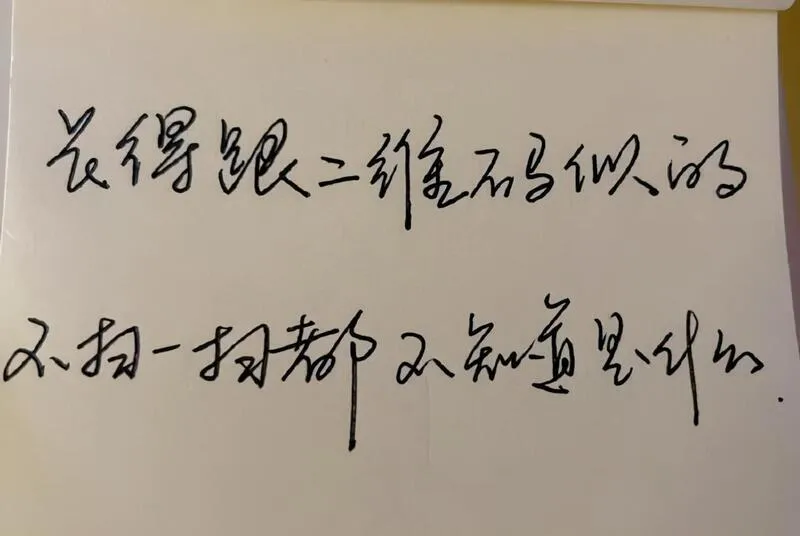 长得跟二维码似的
不扫一扫都不知道是什么.